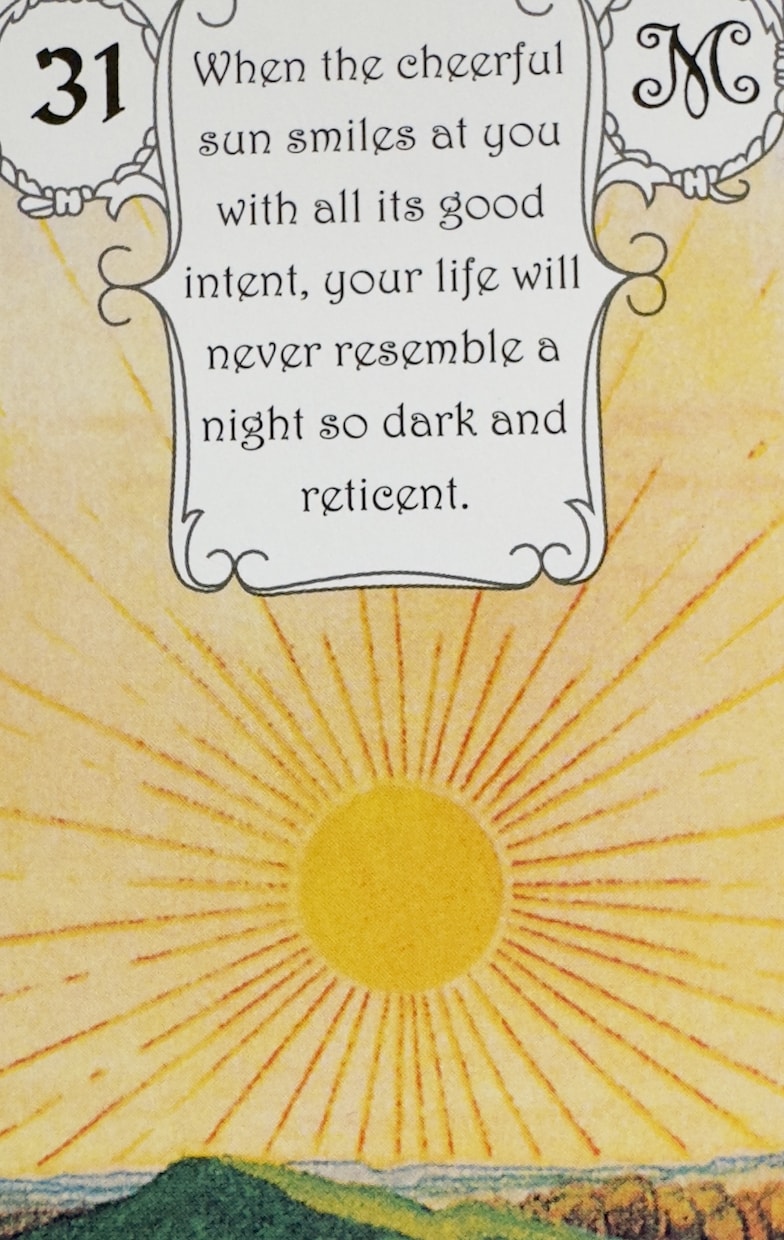 31
M
When the cheerful
sun smiles at you
with all its good
intent, your life will
never resemble a
night so dark and
reticent.